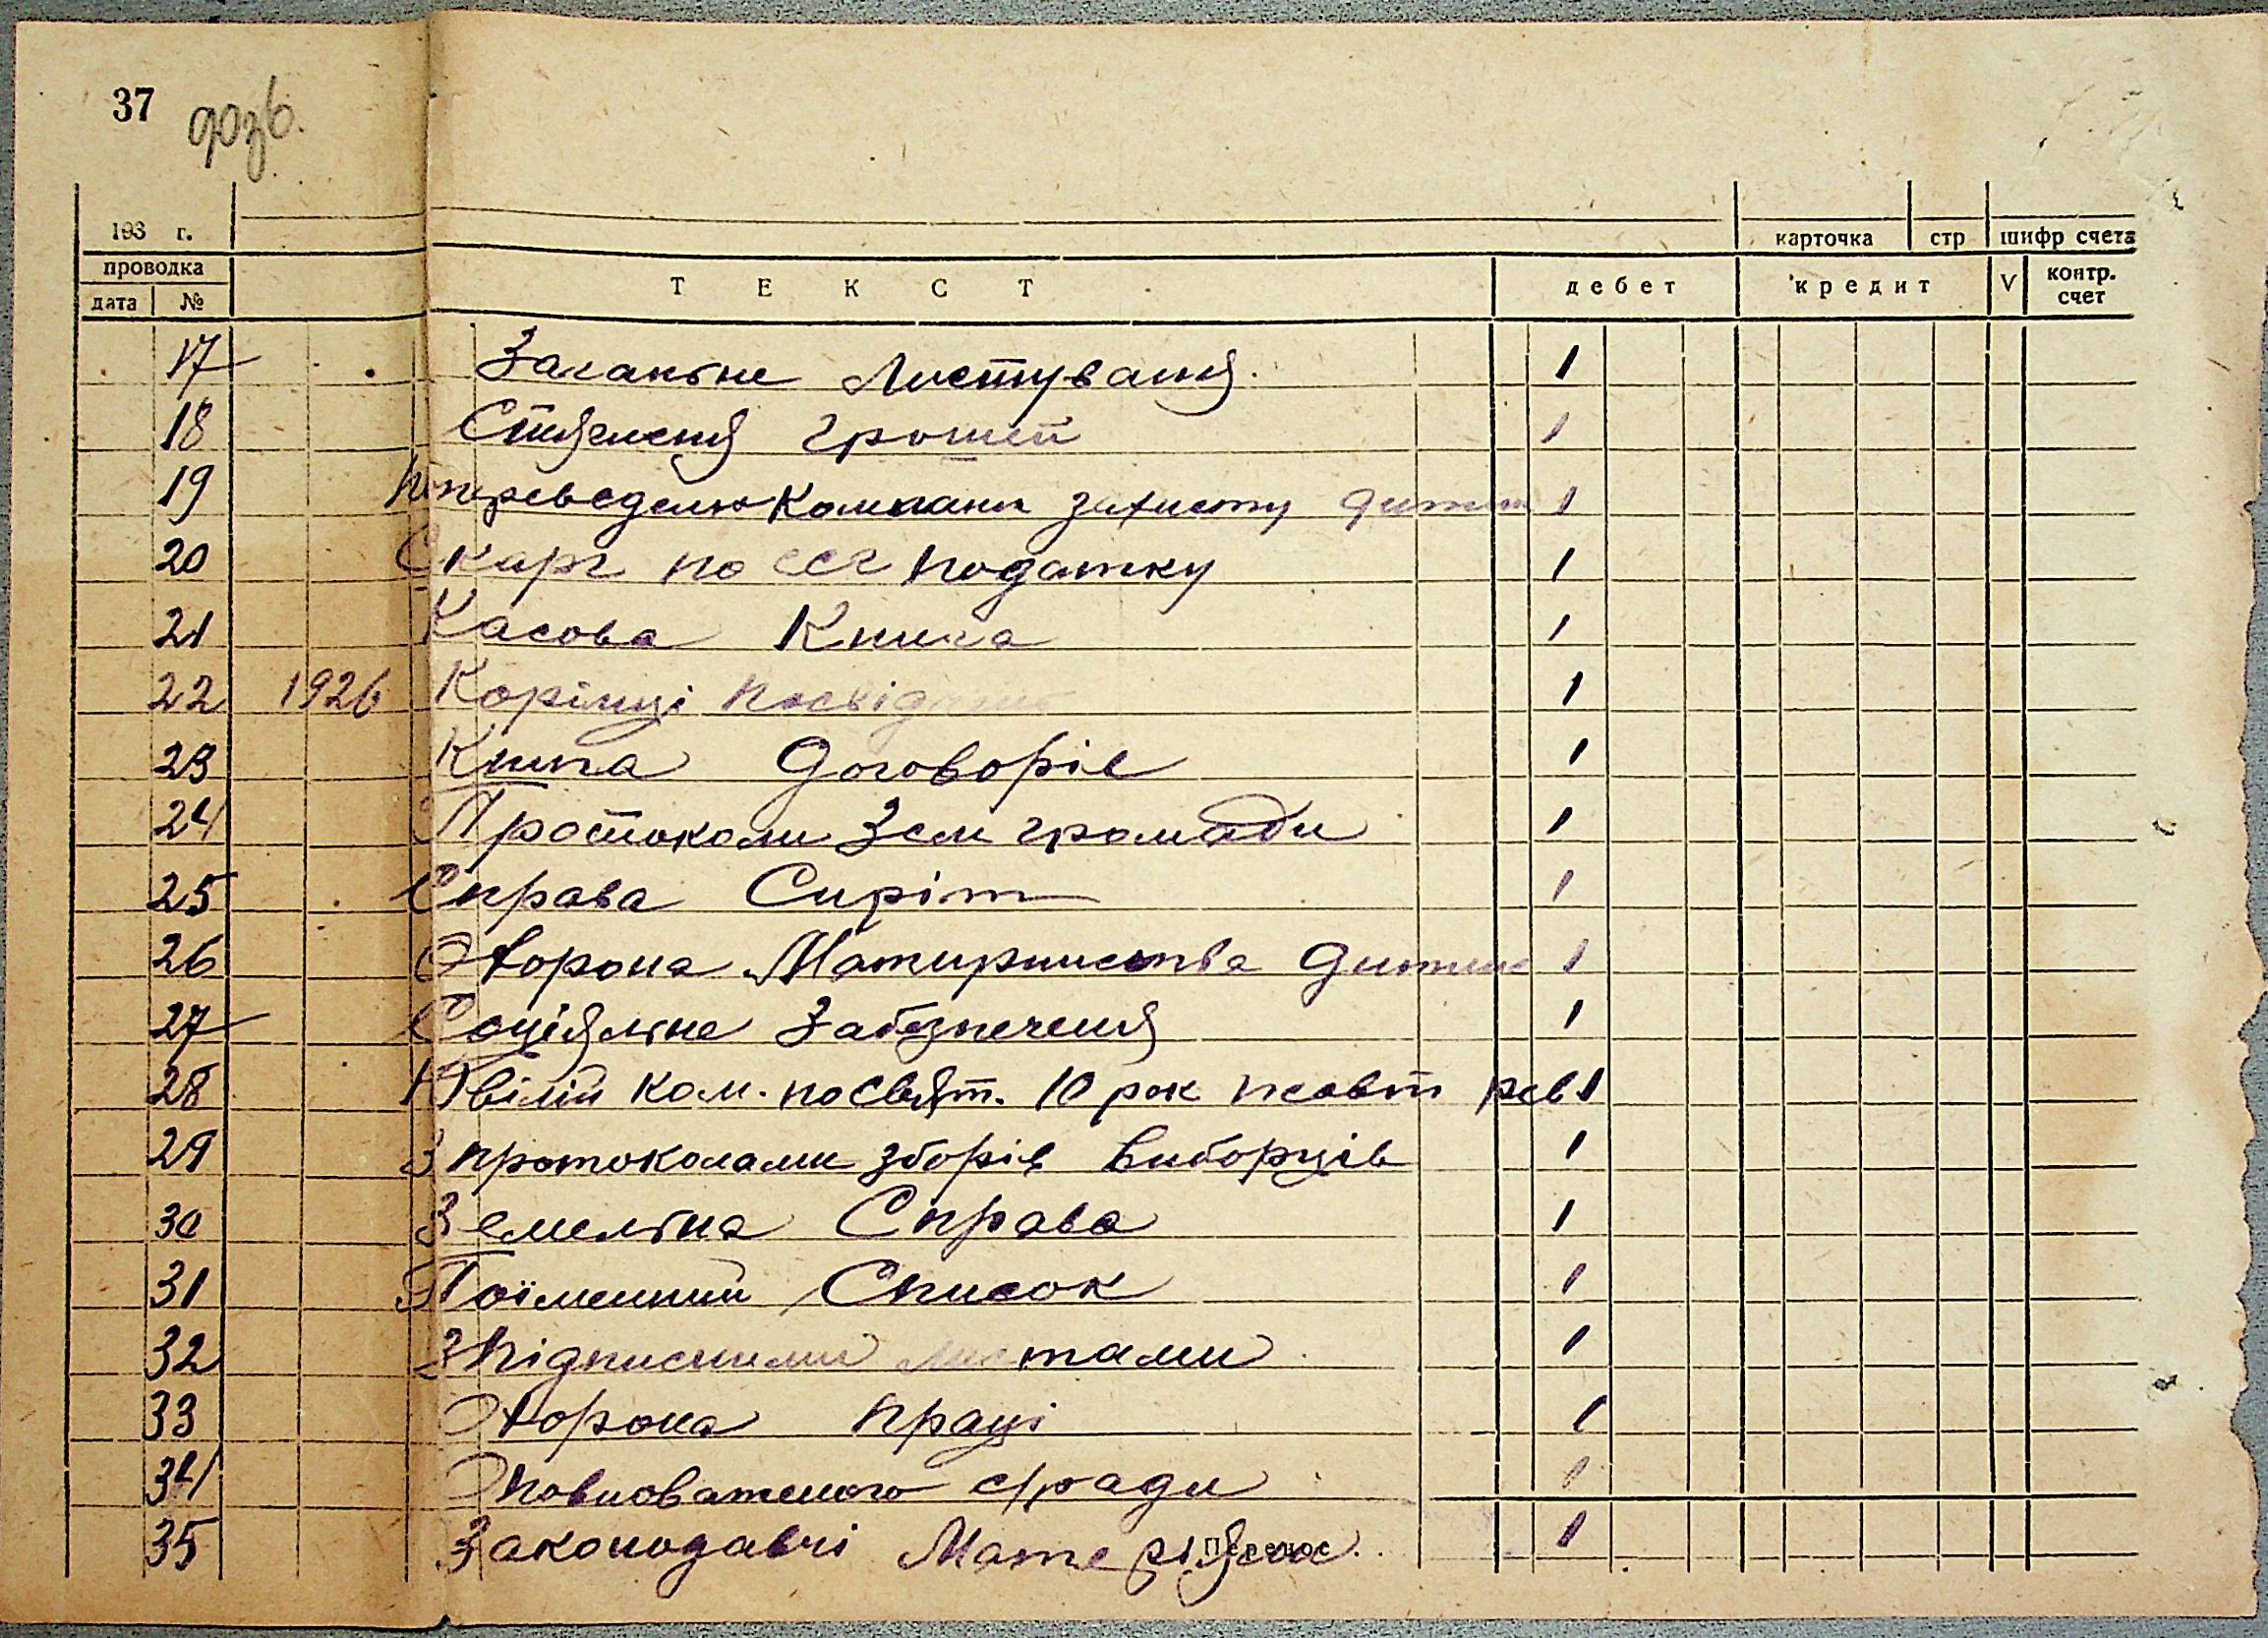 37 дозв.
193 г.
карточка стр шифр счета
проводка
дата № ТЕКСТ дебет кредит V контр. счет
17 Загальне Листування. 1
18 Стягнення грошей 1
19 По переведеню Компани захисту дитин 1
20 Скарг по ССГ податку 1
21 Касова Книга 1
22 1926 Корінці посвід 1
23 Книга Договорів 1
24 Протоколи Зем громади 1
25 Справа Сиріт 1
26 Охорона Матиринства Дитин 1
27 Соціяльне Забезпеченя 1
28 Ювілій ком. по Свят. 10 рок жовт рев 1
29 З протоколами зборів виборців 1
30 Земельна Справа 1
31 Поїменний Список 1
32 З підписними листами 1
33 Охорона праці 1
34 Уповноваженого с/ради 1
35 Законодавчі Матеріяли 1
Перенос.